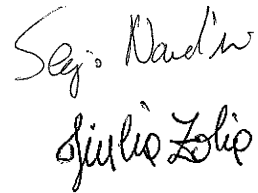 Sergio Nardin
Giulia Zolia